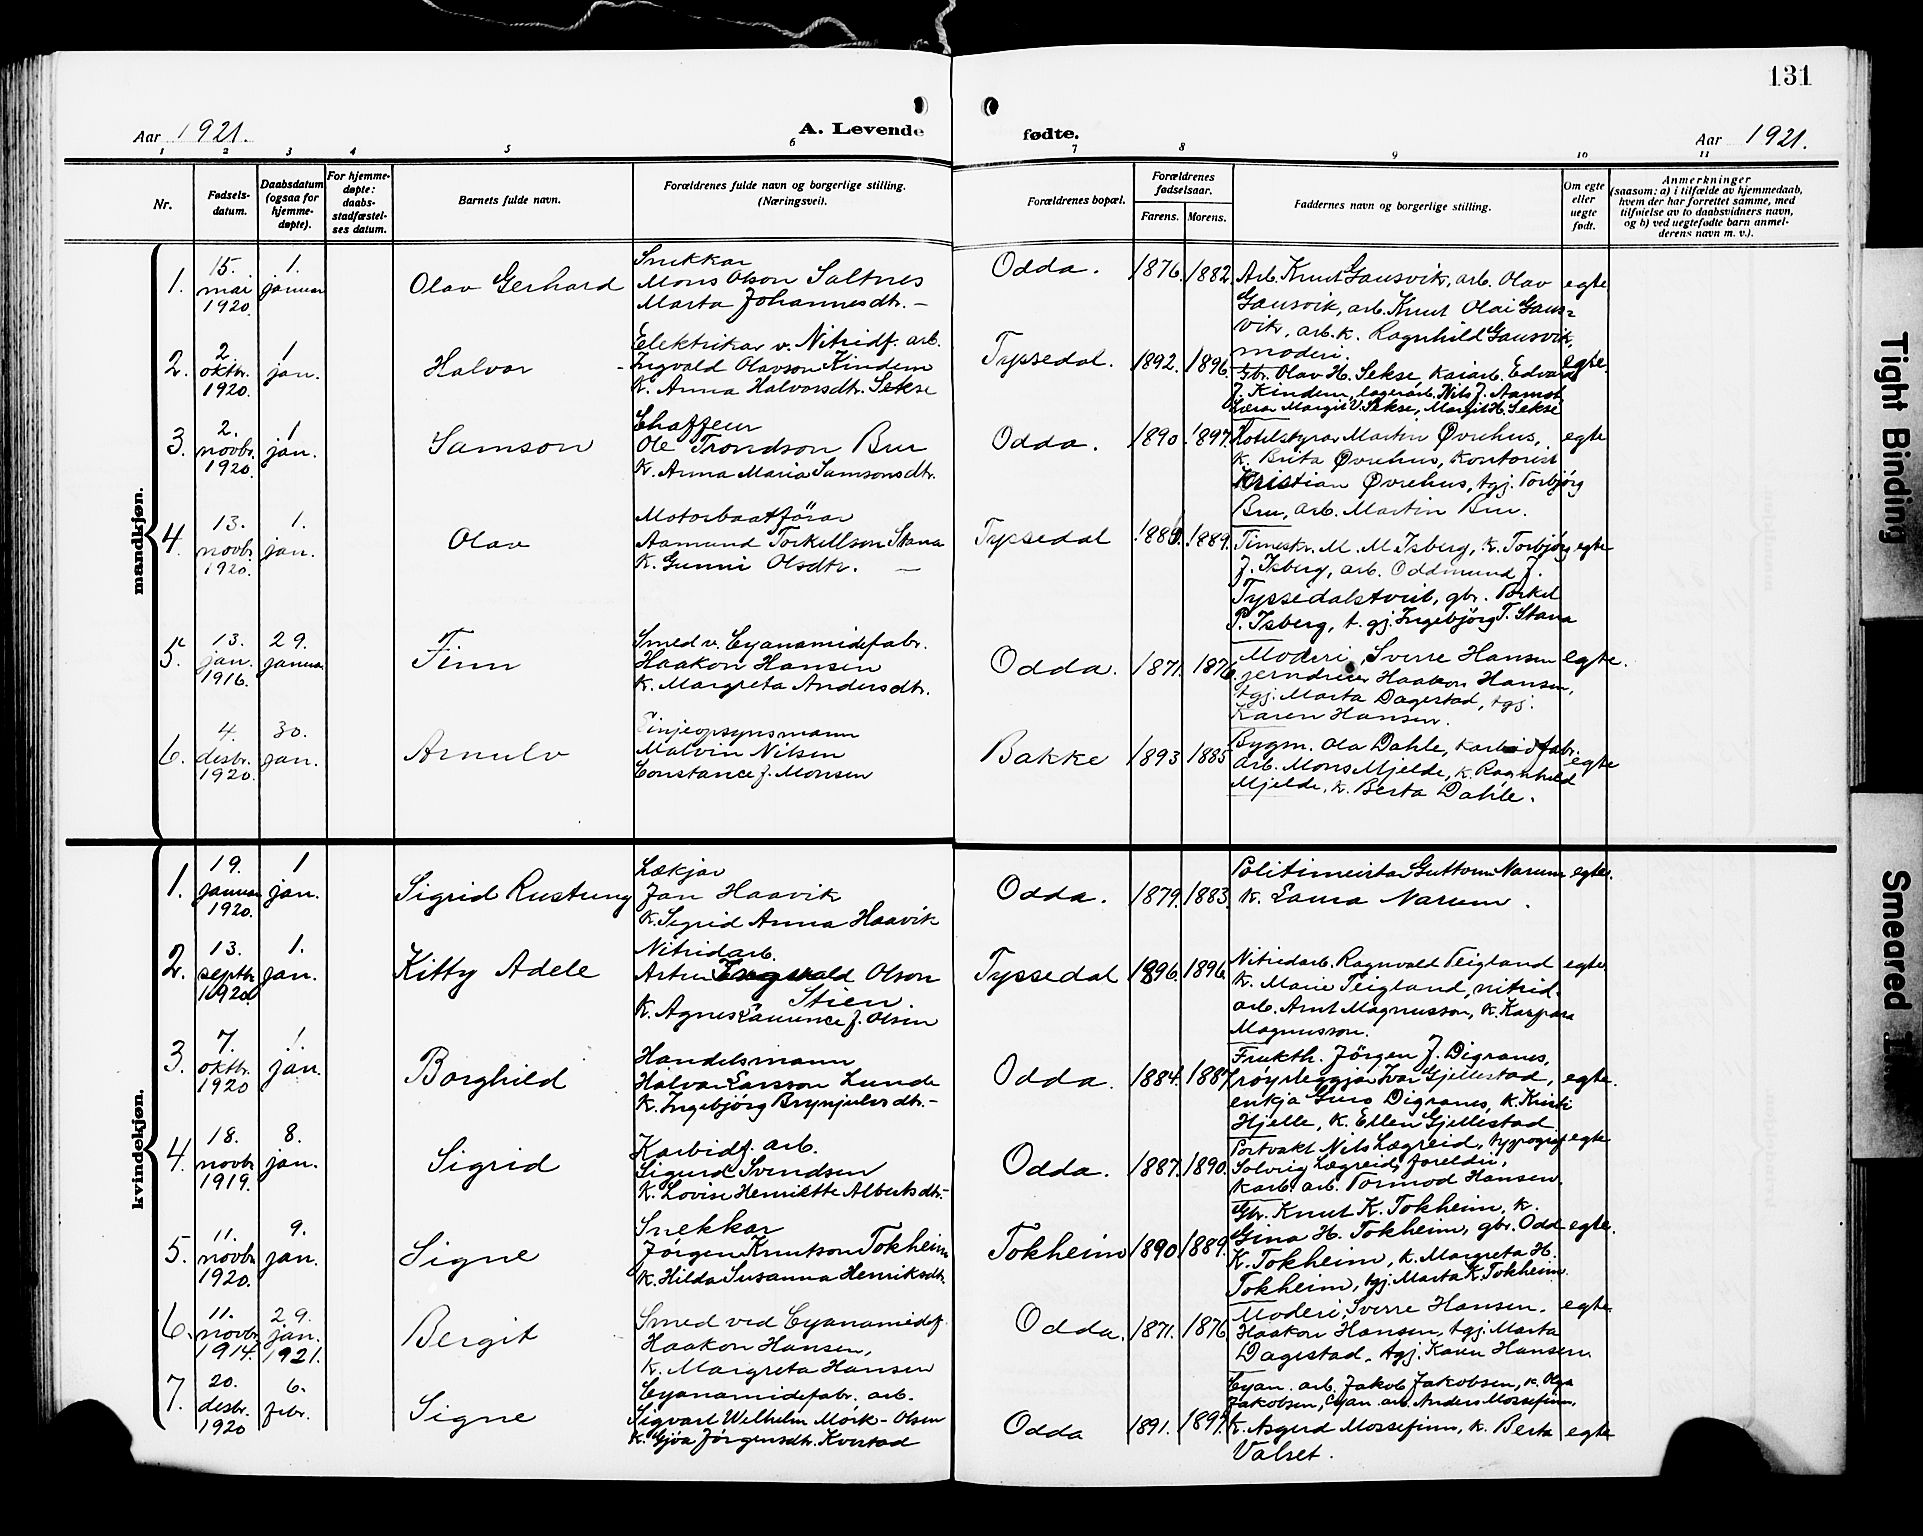 131
Aar 1921. A. Levende fødte. Aar 1921.
1 2 3 4 5 6 7 8 9 10 11
Nr.
Fødsels-
datum.
Daabsdatum
(ogsaa for
hjemme-
døpte).
For hjemme-
døpte:
daabs-
stadfæstel-
ses datum.
Barnets fulde navn.
Forældrenes fulde navn og borgerlige stilling.
(Næringsvei).
Forældrenes bopæl.
Forældrenes
fødselsaar.
Farens. Morens.
Faddernes navn og borgerlige stilling.
Om egte
eller
uegte
født.
Anmerkninger
(saasom: a) i tilfælde av hjemmedaab,
hvem der har forrettet samme, med
tilføielse av to daabsvidners navn,
og b) ved uegtefødte barn anmel-
derens navn m. v.).
mandkjøn.
1.
15.
mai
1920.
1.
januar
Olav Gerhard
Snikkar
Mons Olson Saltnes
Marta Johannesdtr. –
Odda.
1876. 1882.
Arb. Knut Gausvik, arb. Olav
Gausvik, arb. Knut Olai Gaus=
vik, arb. k. Ragnhild Gausvik,
moderi.
egte
2.
2.
oktbr.
1920.
1
jan.
Halvor
Elektrikar v. Nitridf. arb.
Ingvald Olavson Kindem
k. Anna Halvorsdtr. Sekse
Tyssedal.
1892. 1896.
Gbr. Olav H. Sekse, kaiarb. Edvard
J. Kindem, lagerarb. Nils J. Aamot
Lærar Margit V. Sekse, Margit H. Sekse
egte.
3.
2.
novbr.
1920.
1
jan.
Samson
Chaffeur
Ole Trondson Bru
k. Anna Maria Samsonsdtr.
Odda.
1890. 1897.
Hotelstyrar Martin Øvrehus,
k. Brita Øvrehus, kontorist
Kristian Øvrehus, tgj. Torbjørg
Bru, arb. Martin Bru.
egte
4.
13.
novbr.
1920.
1.
jan.
Olav
Motorbaatförar
Aamund Torkellson Stana
k. Gunni Olsdtr. –
Tyssedal
1886. 1889.
Timeskr. M. M. Isberg, k. Torbjørg
J. Isberg, arb. Oddmund J.
Tyssedalstveit, gbr. Torkel
P. Isberg, t. gj. Ingebjörg T. Stana
egte
5.
13.
jan.
1916.
29.
januar
Finn
Smed v. Cyanamidefabr.
Haakon Hansen
k. Margreta Andersdtr.
Odda.
1871. 1876.
Moderi, Sverre Hansen
jerndreier Haakon Hansen,
tgj. Marta Dagestad, tgj.
Karen Hansen.
egte.
6.
4.
desbr.
1920.
30.
jan.
Arnulv
Linjeopsynsmann
Malvin Nilsen
Constance J. Monsen
Bakke
1893 1885
Bygm. Ola Dahle, karbidfabr.
arb. Mons Mjelde, k. Ragnhild
Mjelde, k. Berta Dahle.
egte
kvindekjøn.
1.
19.
januar
1920.
1
jan.
Sigrid Rustung
Lækjar
Jan Haavik
k. Sigrid Anna Haavik
Odda.
1879. 1883.
Politimeistar Guttorm Narum
k. Laura Narum.
egte.
2.
13.
septbr.
1920.
1.
jan.
Kitty Adele
Nitridarb.
Artur Engvald Olson
Stien.
k. Agnes Laurence J. Olsen
Tyssedal
1896. 1896.
Nitridarb. Ragnvald Teigland
k. Marie Teigland, nitrid-
arb. Arnt Magnusson, k. Kaspara
Magnusson.
egte
3.
7.
oktbr.
1920
1.
jan.
Borghild
Handelsmann
Halvar Larsson Lunde
k. Ingebjörg Brynjulvsdtr. –
Odda.
1884. 1887
Frukth. Jörgen J. Digranes,
röyrleggjar Ivar Gjellestad,
enkja Guro Digranes, k. Kristi
Hjelle, k. Ellen Gjellestad.
egte.
4.
18.
novbr.
1919.
8.
jan.
Sigrid
Karbidf. arb.
Sigurd Svendsen
k. Lovise Henriette Albertsdtr. –
Odda.
1887. 1890.
Portvakt Nils Lægreid, typograf
Solveig Lægreid, foreldri,
karb. arb. Tormod Hansen.
egte
5.
11.
novbr.
1920.
9.
jan.
Signe
Snekkar
Jörgen Knutson Tokheim
k. Hilda Susanna Henriksdtr.
Tokheim
1890. 1889.
Gbr. Knut K. Tokheim, k.
Gina H. Tokheim, gbr. Odd
K. Tokheim, k. Margreta H.
Tokheim, tgj. Marta K. Tokheim.
egte.
6.
11.
novbr.
1914.
29.
jan.
1921.
Bergit
Smed ved Cyanamidf.
Haakon Hansen,
k. Margreta Hansen
Odda.
1871. 1876
Moderi, Sverre Hansen.
Haakon Hansen, tgj. Marta
Dagestad, tgj. Karen Hansen.
egte
7.
20.
desbr.
1920
6.
febr.
Signe
Cyanamidefabr. arb.
Sigvart Wilhelm Mörk-Olsen
k. Gjöa Jörgensdtr. Kvestad
Odda
1891. 1894.
Cyan. arb. Jakob Jakobsen, k. Olga
Jakobsen, Cyan. arb. Anders Mossefinn,
k. Asgerd Mossefinn, k. Berta
Valset.
egte
Tight Binding
Smeared